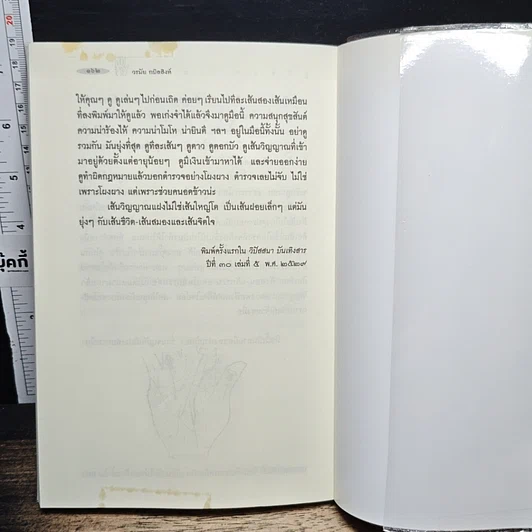 ๑๖๒ วรนัย หมัดสิงห์
ให้คุณๆ ดู ดูเล่นๆ ไปก่อนเถิด ค่อยๆ เรียนไปทีละเส้นสองเส้นเหมือน
ที่ลงพิมพ์มาให้ดูแล้ว พอเก่งจำได้แล้วจึงมาดูมือนี้ ความสนุกสุขสันต์
ความน่าร้องไห้ ความน่าโมโห น่ายินดี ฯลฯ อยู่ในมือนี้ทั้งนั้น อย่าดู
รวมกัน มันยุ่งที่สุด ดูทีละเส้นๆ ดูดาว ดูดอกบัว ดูเส้นวิญญาณที่เข้า
มาอยู่ด้วยตั้งแต่อายุน้อยๆ ดูมีเงินเข้ามาหาได้ และจ่ายออกง่าย
ดูทำผิดกฎหมายแล้วบอกตำรวจอย่างโผงผาง ตำรวจเลยไม่จับ ไม่ใช่
เพราะโผงผาง แต่เพราะช่วยคนอดข้าวน่ะ
เส้นวิญญาณแฝงไม่ใช่เส้นใหญ่โต เป็นเส้นฝอยเล็กๆ แต่มัน
ยุ่งๆ กับเส้นชีวิต-เส้นสมองและเส้นจิตใจ
พิมพ์ครั้งแรกใน วิปัสสนา บันเทิงสาร
ปีที่ ๓๐ เล่มที่ ๕ พ.ศ. ๒๕๒๙